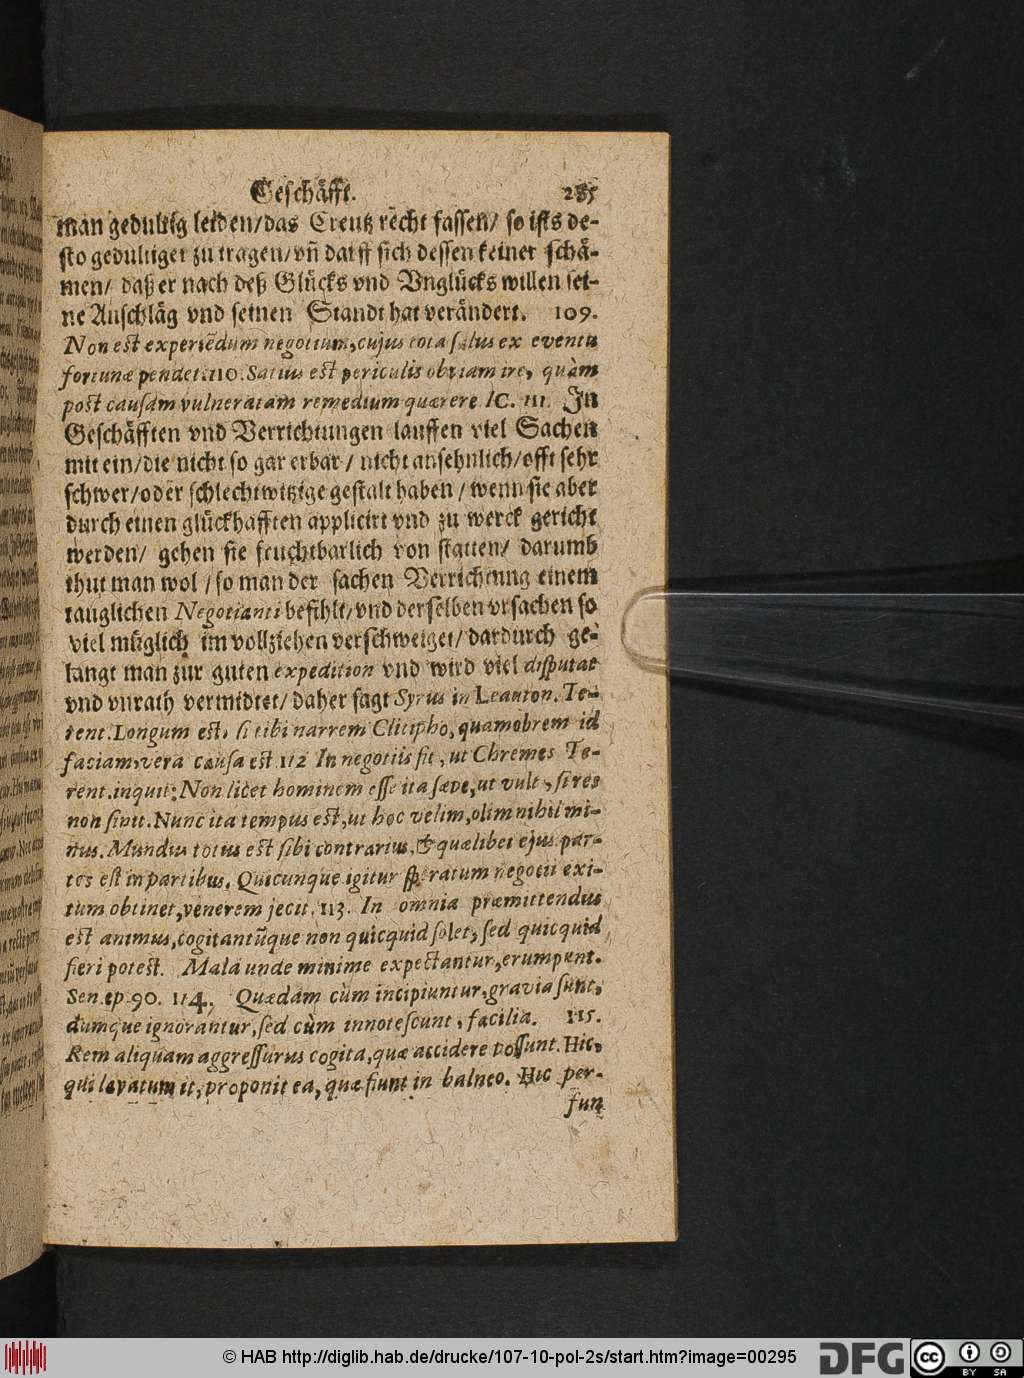 Geschäfft. 285
man gedultig leiden/das Creutz recht fassen/ so ists de-
sto gedultiger zu tragen/vñ darff sich dessen keiner schä-
men/ daß er nach deß Glücks vnd Vnglücks willen sei-
ne Anschläg vnd seinen Standt hat verändert. 109.
Non est experiẽdum negotium, cujus tota salus ex eventu
fortunæ pendet. 110. Satius est periculis obviam ire, quàm
post causam vulneratam remedium quærere IC. 111. In
Geschäfften vnd Verrichtungen lauffen viel Sachen
mit ein/die nicht so gar erbar/ nicht ansehnlich/offt sehr
schwer/oder schlechtwitzige gestalt haben/wenn sie aber
durch einen glückhafften applicirt vnd zu werck gericht
werden/ gehen sie fruchtbarlich von statten/ darumb
thut man wol/so man der sachen Verrichtung einem
tauglichen Negotianti befihlt/vnd derselben vrsachen so
viel müglich im vollziehen verschweiget/dardurch ge-
langt man zur guten expedition vnd wird viel disputat
vnd vnrath vermidtet/daher sagt Syrus in Leauton. Te-
rent. Longum est, si tibi narrem Clitipho, quamobrem id
faciam, vera causa est. 112 In negotiis fit, ut Chremes Te-
rent. inquit: Non licet hominem esse ita sæpe, ut vult, si res
non sinit. Nunc ita tempus est, ut hoc velim, olim nihil mi-
nus. Mundus totus est sibi contrarius, & quælibet ejus par-
tes est in partibus. Quicunque igitur speratum negotii exi-
tum obtinet, venerem jecit. 113. In omnia præmittendus
est animus, cogitantũque non quicquid solet, sed quicquid
fieri potest. Mala unde minime expectantur, erumpunt.
Sen. ep. 90. 114. Quædam cùm incipiuntur, gravia sunt,
dumque ignorantur, sed cùm innotescunt, facilia. 115.
Rem aliquam aggressurus cogita, quæ accidere possunt. Hic,
qui lavatum it, proponit ea, quæ fiunt in balneo. Hic per-
fun
© HAB http://diglib.hab.de/drucke/107-10-pol-2s/start.htm?image=00295
DFG
cc
BY SA